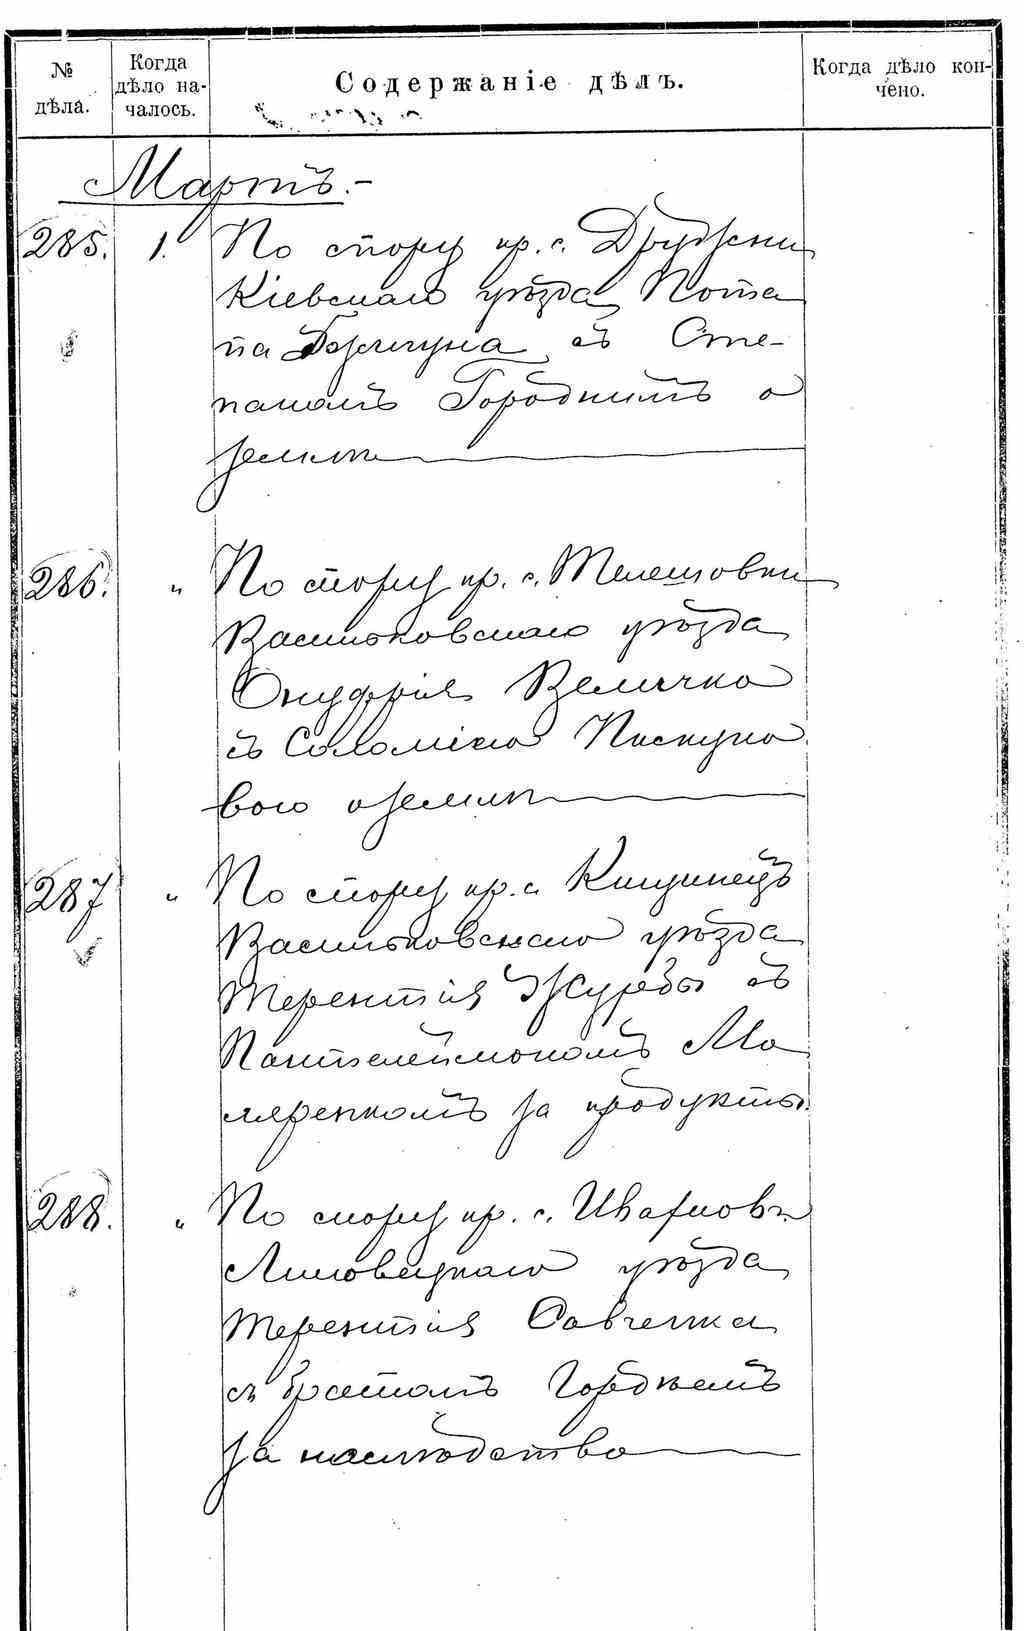 № дѣла.
Когда дѣло на-
чалось.
Содержаніе дѣлъ.
Когда дѣло кон-
чено.
Мартъ.-
285. 1. По спору кр. с. Дружни
Кіевскаго уѣзда Пота
па съ Сте-
паномъ Городнимъ о
землѣ
286. " По спору кр. с. Телешовки
Васильковскаго уѣзда
Онуфрія Величко
съ Соломією Пискуно
вою о землѣ
287 " По спору кр. с. Кищинецъ
Васильковскаго уѣзда
Терентія Журбы съ
Пантелеймономъ Ма
ляренкомъ за продукты.
288. " По спору кр. с.
Липовецкаго уѣзда
Терентія Савченка
съ братомъ Гордѣемъ
за наслѣдство